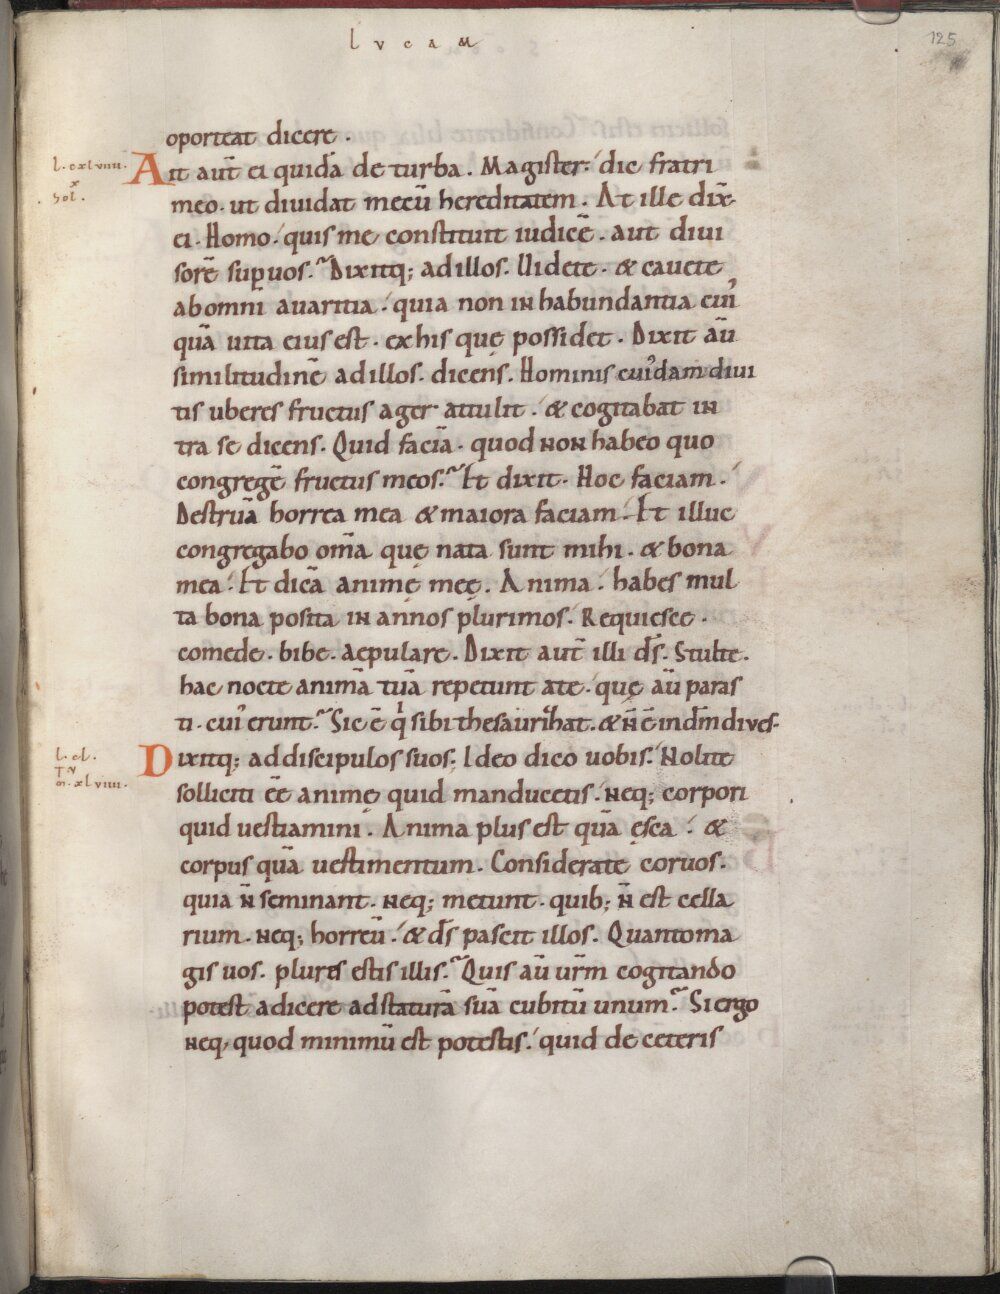 lvcam
125
oporteat dicere .
l. cxlviiii.
x
Sol.
Ait aut̄ ei quidā de turba . Magister : dic fratri
meo . ut diuidat mecū hereditatem . At ille dix̄
ei . Homo . quis me constituit iudicē . aut diui
sorē sup̱ uos . Dixitq; ad illos . Uidete . & cauete
ab omni auaritia . quia non in habundantia cui'
quā uita eius est . ex his quę possidet . Dixit aū
similitudinē ad illos . dicens . Hominis cui'dam diui
tis uberes fructus ager attulit . & cogitabat in
tra se dicens . Quid faciā . quod non habeo quo
congregē fructus meos . Et dixit . Hoc faciam .
Destruā horrea mea & maiora faciam . Et illuc
congregabo om̄a quę nata sunt mihi . & bona
mea . Et dicā animę meę . Anima . habes mul
ta bona posita in annos plurimos . Requiesce .
comede . bibe . aepulare . Dixit aut̄ illi d̄s . Stulte .
hac nocte animā tuā repetunt a te . quę aū paras
ti . cui' erunt . Sic ē qi sibi thesaurihat . & n̄ ē in dm̄ dives .
l. cl.
m . xlviiii .
Dixitq; ad discipulos suos . Ideo dico uobis . Nolite
solliciti eē animę quid manducetis . neq; corpori
quid uestiamini . Anima plus est quā ęsca . &
corpus quā uestimentum . Considerate coruos .
quia n̄ seminant . neq; metunt . quib; n̄ est cella
rium . neq; horreū . & d̄s pascit illos . Quanto ma
gis uos . plures estis illis . Quis aū ur̄m cogitando
potest adicere ad staturā suā cubitū unum . Si ergo
neq, quod minimū est potestis . quid de ceteris